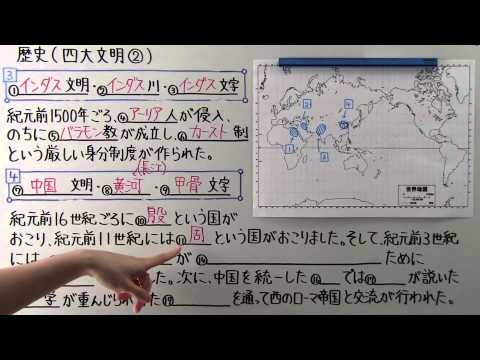 歴史(四大文明②)
3
①インダス文明・②インダス川・③インダス文字
紀元前1500年ごろ、④アーリア人が侵入、
のちに⑤バラモン教が成立し、⑥カースト制
という厳しい身分制度が作られた。
4
(長江)
⑦中国 文明・⑧黄河・⑨甲骨文字
紀元前16世紀ごろに⑩殷という国が
おこり、紀元前11世紀には⑪周という国がおこりました。そして、紀元前3世紀
には が⑭ ために
た。次に、中国を統一した⑯ では⑰ が説いた
学が重んじられ た⑲ を通って西のローマ帝国と交流が行われた。
1
2
3
4
世界地図